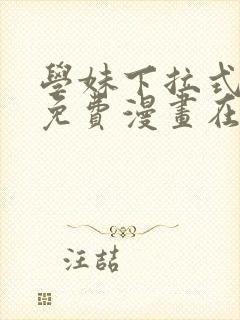 學妹下拉式
免費漫畫在
汪喆